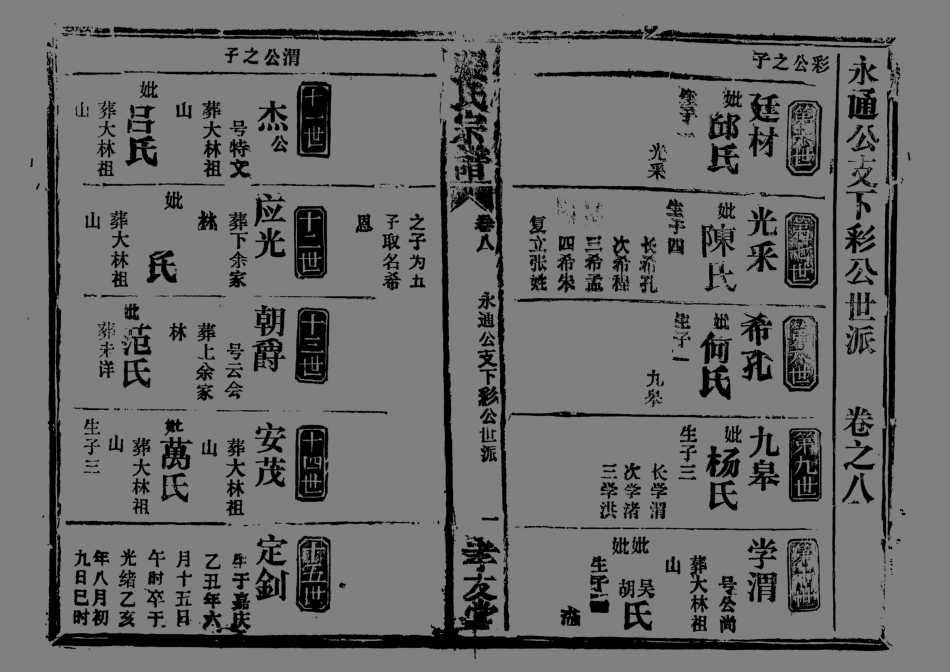 永通公支下彩公世派 卷之八
彩公之子
第六世
廷材
妣邱氏
生子一
光采
第七世
光采
妣陳氏
生子四
长希孔
次希程
三希孟
四希朱
复立张姓
之子为五
子取名希
恩
第八世
希孔
妣何氏
生子一
九皋
第九世
九皋
妣杨氏
生子三
长学渭
次学渚
三学洪
第十世
学渭
号公尚
葬大林祖
山
妣吴氏
妣胡氏
生子一
氏宗譜
卷八
永通公支下彩公世派
一
孝友堂
渭公之子
十一世
杰公
号特文
葬大林祖
山
妣吕氏
葬大林祖
山
十二世
应光
葬下余家
林
妣 氏
葬大林祖
山
十三世
朝爵
号云会
葬上余家
林
妣范氏
葬未详
十四世
安茂
葬大林祖
山
妣萬氏
葬大林祖
山
生子三
十五世
定釗
生于嘉庆
乙丑年六
月十五日
午时卒于
光绪乙亥
年八月初
九日巳时